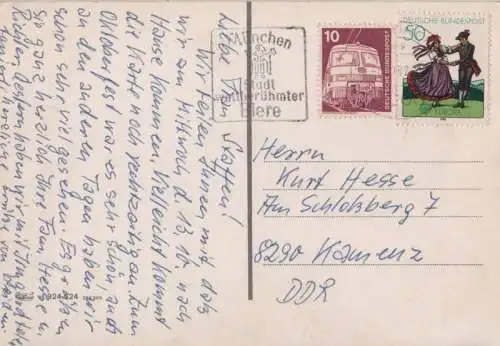 Liebe Steffen!
Wir teilen Ihnen mit, daß
wir am Mittwoch d. 13.10. nach
Hause kommen. Vielleicht kommt
die Karte noch rechtzeitig an. Zum
Oktoberfest war es sehr schön, auch
an den anderen Tagen haben wir
schon sehr viel gesehen. Es grüßen
Sie ganz herzlich Ihre Fam. Hesse
haben wir
herzliche Grüße von
924 824
München
Stadt
weltberühmter
Biere
10
DEUTSCHE BUNDESPOST
DEUTSCHE BUNDESPOST
50
EUROPA
Herrn
Kurt Hesse
Am Schloßberg 7
8290 Kamenz
DDR